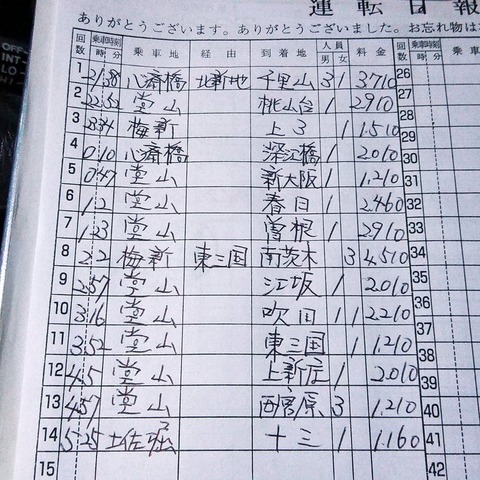 運転日報
ありがとうございます。ありがとうございました。お忘れ物は
回数 乗車時刻 時 分 乗車地 経由 到着地 人員 男 女 料金 回数 乗車時刻 時 分 乗車
1 21:38 心斎橋 北新地 千里山 3 1 3710 26
2 22:52 堂山 桃山台 1 2910 27
3 梅新 上3 1 1.510 28
29
4 0/10 心斎橋 深江橋 1 2010 30
5 0:47 堂山 新大阪 1 1.210 31
6 1.2 堂山 春日 1 2.460 32
7 1.23 堂山 曽根 1 2910 33
8 2.2 梅新 東三国 南茨木 3 4.510 34
9 2.57 堂山 江坂 1 2010 35
10 3.16 堂山 吹田 1 1 2210 36
37
11 3.52 堂山 東三国 1 1.210 38
12 4.5 堂山 上新庄 1 2010 39
13 4.57 堂山 西中島 3 1.210 40
14 5.25 土佐堀 十三 1 1.160 41
15 42
OFF
INT
LO